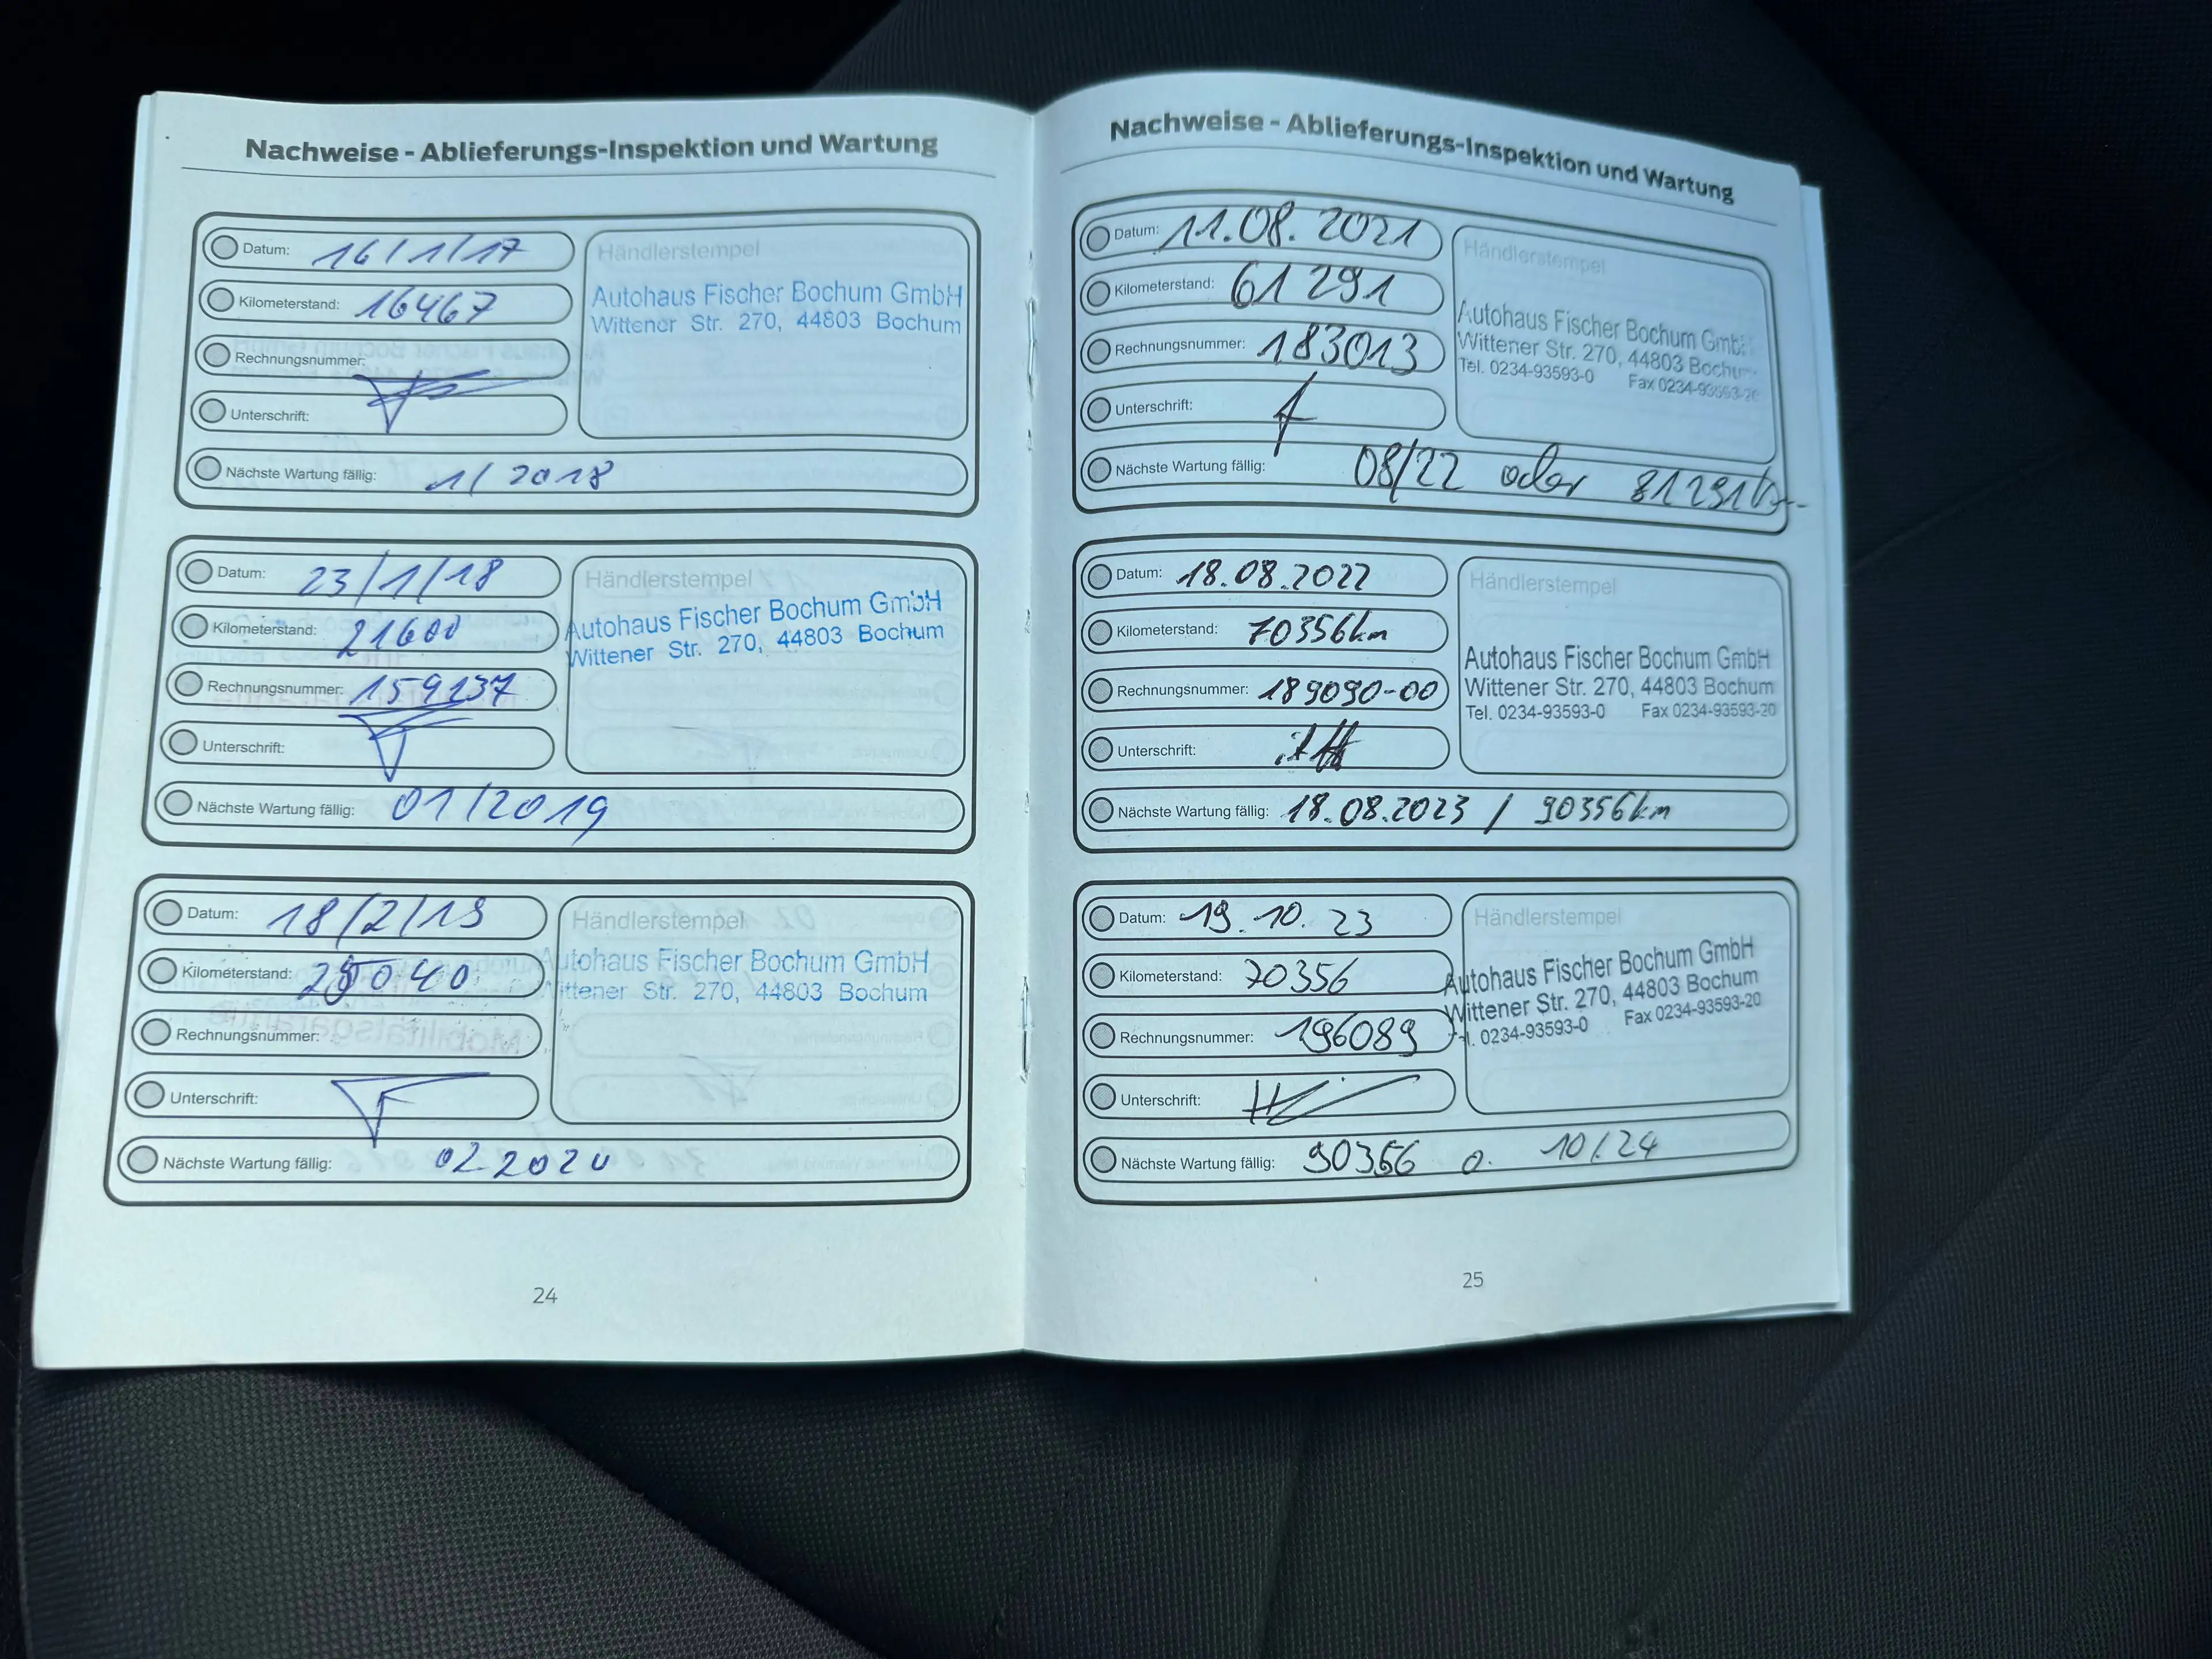 Nachweise - Ablieferungs-Inspektion und Wartung
Datum: 16/1/17
Kilometerstand: 16467
Rechnungsnummer:
Unterschrift:
Nächste Wartung fällig: 1/2018
Händlerstempel
Autohaus Fischer Bochum GmbH
Wittener Str. 270, 44803 Bochum
Datum: 23/1/18
Kilometerstand: 21600
Rechnungsnummer: 159237
Unterschrift:
Nächste Wartung fällig: 01/2019
Händlerstempel
Autohaus Fischer Bochum GmbH
Wittener Str. 270, 44803 Bochum
Datum: 18/2/19
Kilometerstand:
Rechnungsnummer:
Unterschrift:
Nächste Wartung fällig: 02 2020
Händlerstempel
Autohaus Fischer Bochum GmbH
Wittener Str. 270, 44803 Bochum
24
Nachweise - Ablieferungs-Inspektion und Wartung
Datum: 11.08.2021
Kilometerstand: 61291
Rechnungsnummer: 183013
Unterschrift:
Nächste Wartung fällig: 08/22 oder 81291km
Händlerstempel
Autohaus Fischer Bochum GmbH
Wittener Str. 270, 44803 Bochum
Tel. 0234-93593-0 Fax 0234-93593-20
Datum: 18.08.2022
Kilometerstand: 70356km
Rechnungsnummer: 189090-00
Unterschrift:
Nächste Wartung fällig: 18.08.2023 / 90356km
Händlerstempel
Autohaus Fischer Bochum GmbH
Wittener Str. 270, 44803 Bochum
Tel. 0234-93593-0 Fax 0234-93593-20
Datum: 19.10.23
Kilometerstand: 70356
Rechnungsnummer: 196089
Unterschrift:
Nächste Wartung fällig: 90356 o. 10/24
Händlerstempel
Autohaus Fischer Bochum GmbH
Wittener Str. 270, 44803 Bochum
Tel. 0234-93593-0 Fax 0234-93593-20
25